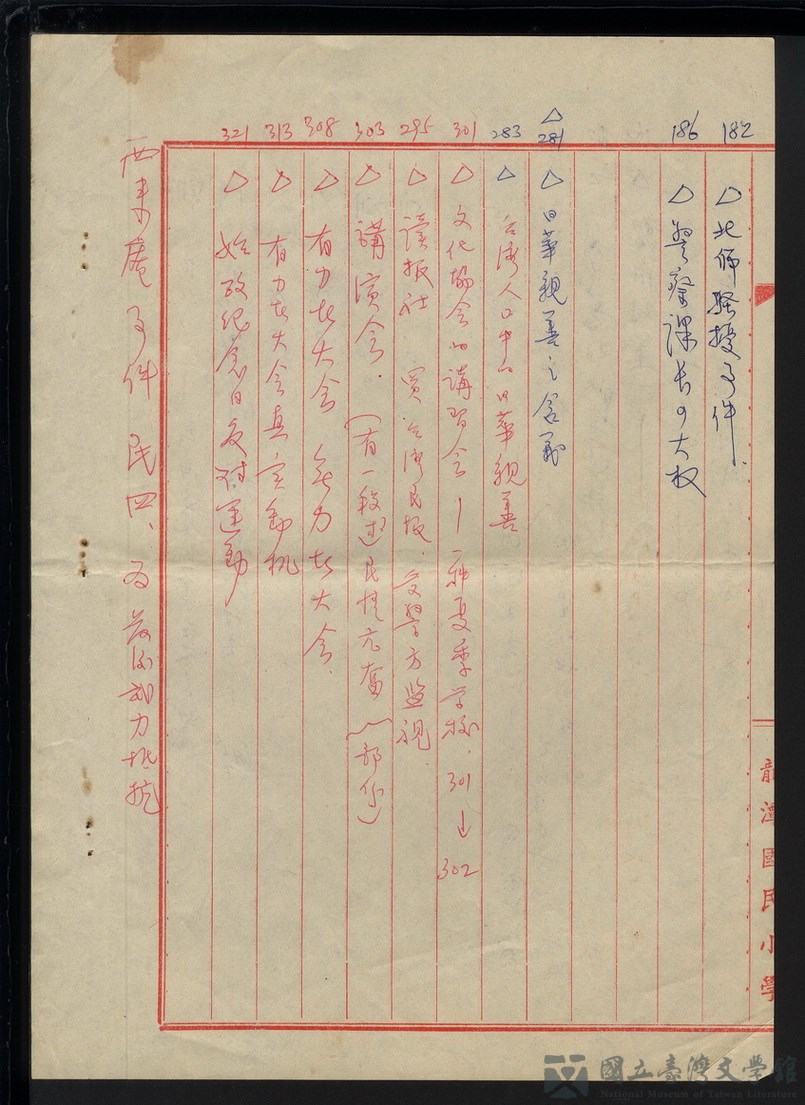 182 △北師騷擾事件.
186 △警察課長の大权
△281 △日華親善之含義
283 △台湾人口中的日華親善
301 △文化協会的講習会—一种夏季学校. 301→302
295 △读报社 買台湾民报. 受警方监視
303 △講演会. (有一段述民情亢奮)(部份)
308 △有力者大会 無力者大会.
313 △有力者大会真实動机
321 △始政纪念日反対運動
西来庵事件 民四、为最後武力抵抗
龍潭國民小學
國立臺灣文學館
National Museum of Taiwan Literature